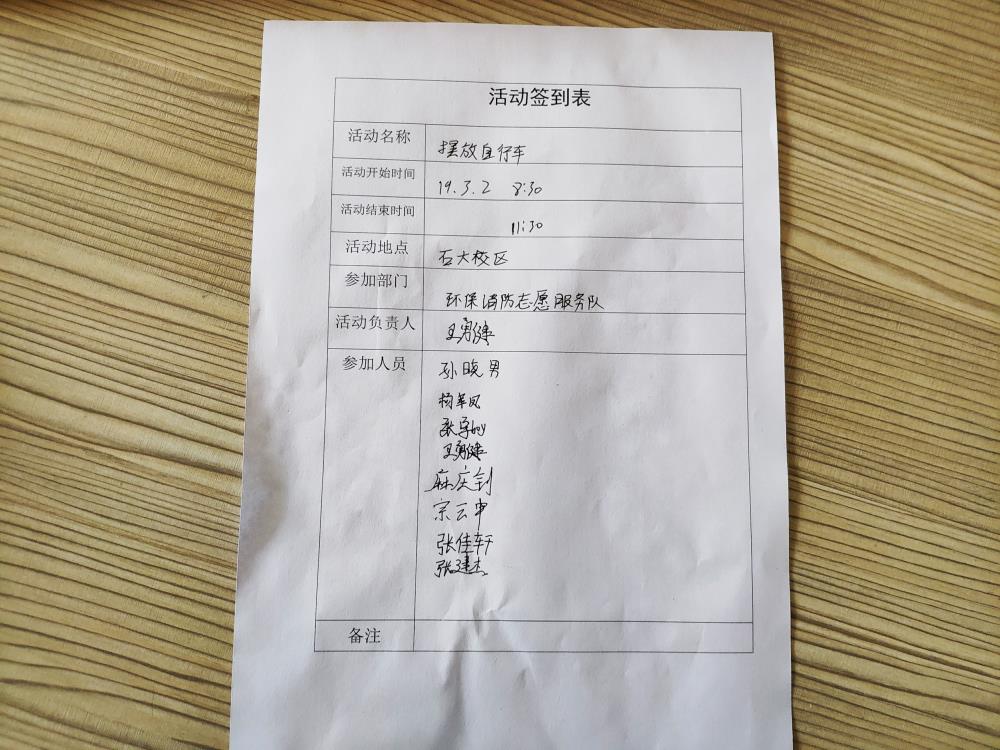 活动签到表
活动名称 摆放自行车
活动开始时间 19.3.2 8:30
活动结束时间 11:30
活动地点 石大校区
参加部门 环保消防志愿服务队
活动负责人 王勇健
参加人员 孙晓男
杨军凤
王勇健
麻庆钊
宗云申
张佳轩
张建杰
备注